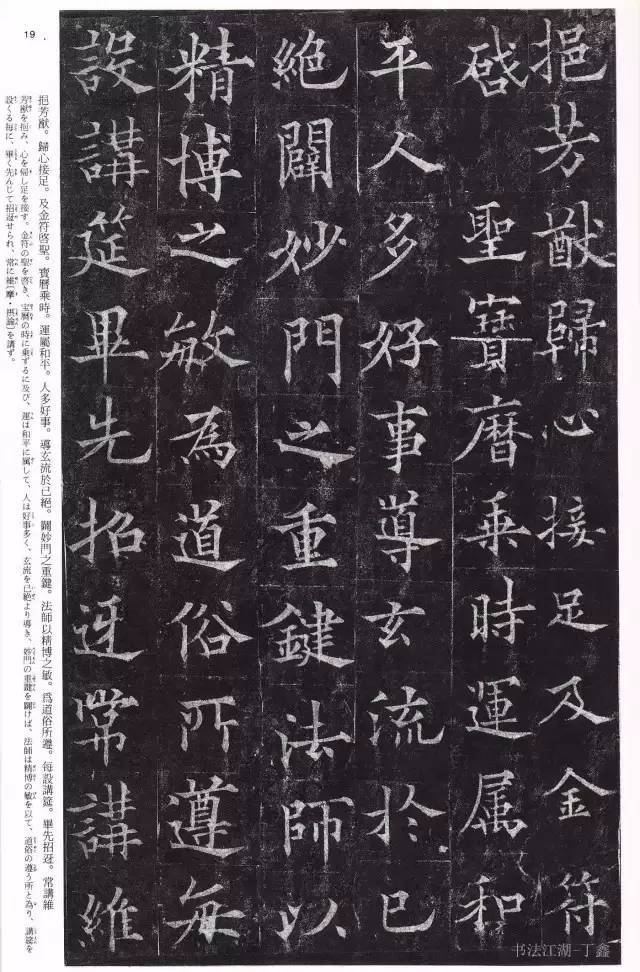 挹芳猷歸心接足及金符
啓聖寶曆乗時運属和
平人多好事導玄流於已
絶闢妙門之重鍵法師以
精博之敏為道俗所遵每
設講筵畢先招迓常講維
挹芳猷。歸心接足。及金符啓聖。寶曆乘時。運屬和平。人多好事。導玄流於已絶。闢妙門之重鍵。法師以精博之敏。爲道俗所遵。每設講筵。畢先招迓。常講維
芳猷を挹み、心を帰し足を接す。金符の聖を啓き、宝暦の時に乗ずるに及び、運は和平に属して、人は好事多く、玄流を已絶より導き、妙門の重鍵を闢けば、法師は精博の敏を以て、道俗の遵う所と為り、講筵を
設くる毎に、畢く先んじて招迓せられ、常に維〔摩・摂論〕を講ず。
19
书法江湖-丁鑫